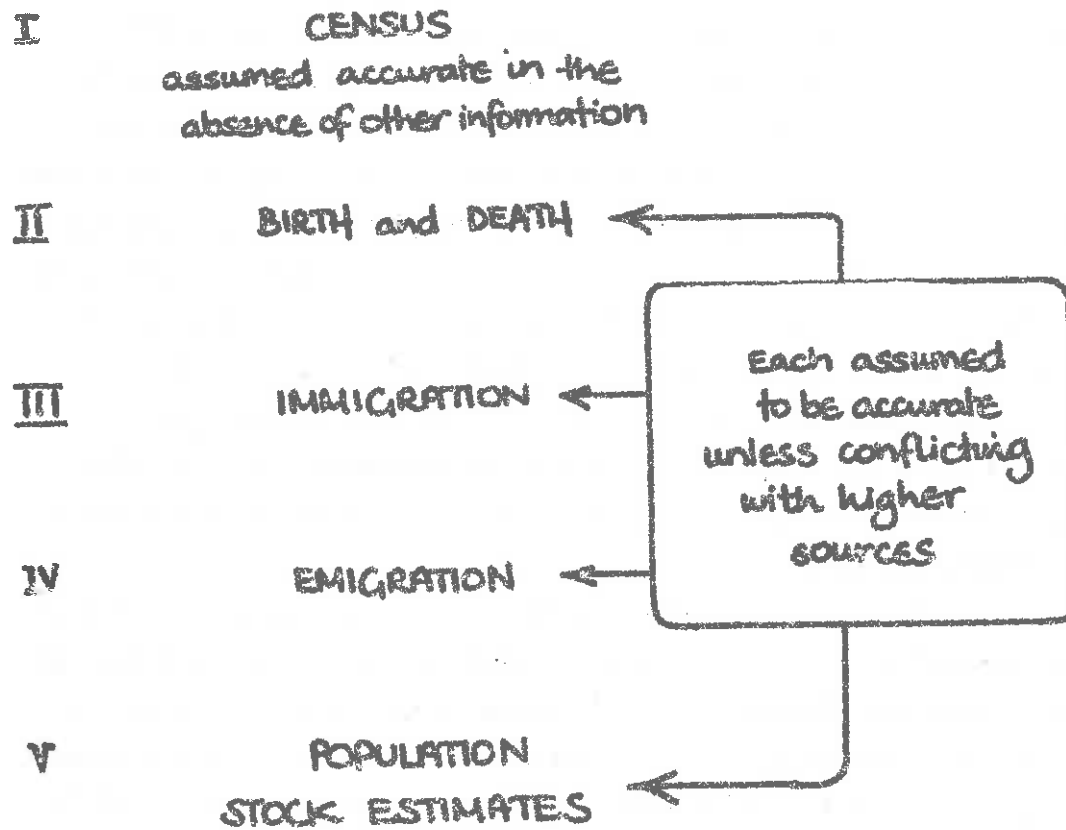 I CENSUS
assumed accurate in the
absence of other information
II BIRTH and DEATH
III IMMIGRATION
IV EMIGRATION
V POPULATION
STOCK ESTIMATES
Each assumed
to be accurate
unless conflicting
with higher
sources